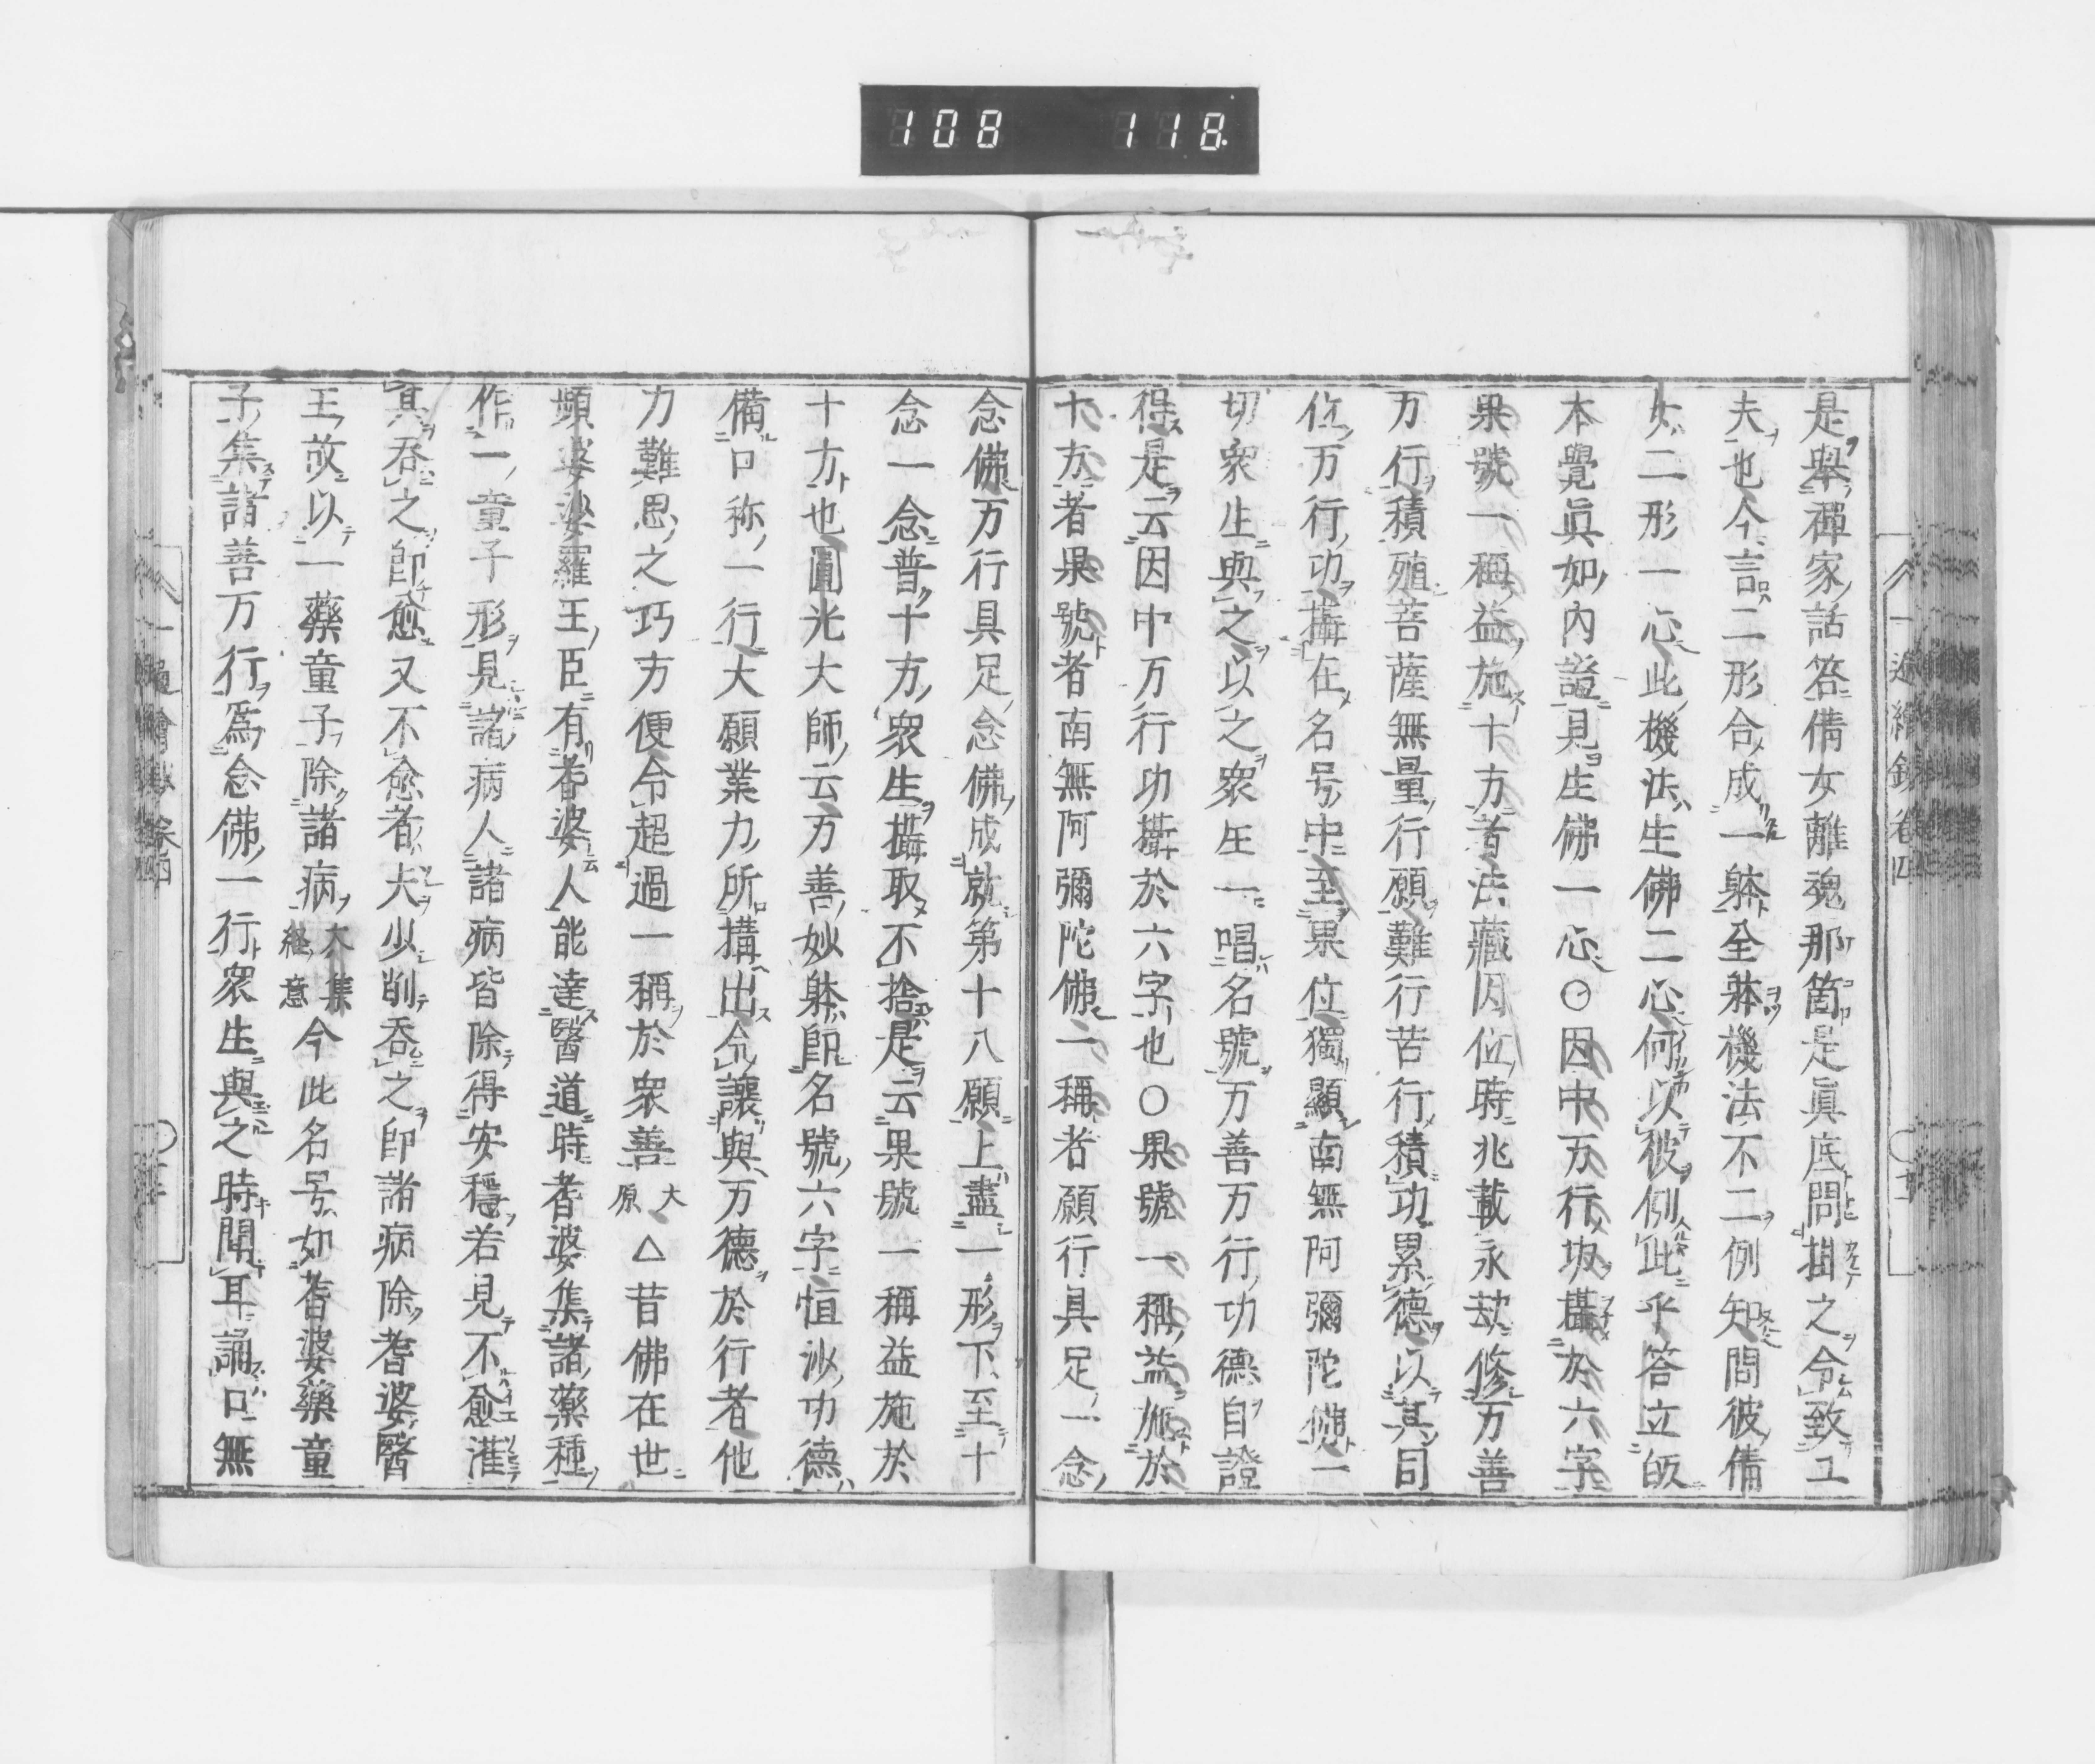 108 118
是舉禪家話答倩女離魂那箇是眞底問掛之令致工
夫也今言二形合成一躰全躰機法不二例知問彼倩
女二形一心此機法生佛二心何以彼例此乎答立皈
本覺眞如內證見生佛一心〇因中万行圾攝於六字
果號一稱益施十方者法藏因位時兆載永劫修万善
万行積殖菩薩無量行願難行苦行積功累德以其同
位万行功攝在名号中至果位獨顯南無阿彌陀佛一
切衆生與之以之衆生一唱名號万善万行功德自證
得是云因中万行功攝於六字也〇果號一稱益施於
十方者果號者南無阿彌陀佛一稱者願行具足一念
念佛万行具足念佛成就第十八願上盡一形下至十
念一念普十方衆生攝取不捨是云果號一稱益施於
十方也圓光大師云万善妙躰即名號六字恒沙功德
備口称一行大願業力所構出令讓與万德於行者他
力難思之巧方便令超過一稱於衆善大原△昔佛在世
頻婆娑羅王臣有耆婆人能達醫道時耆婆集諸藥種
作一童子形見諸病人諸病皆除得安穩若見不愈灌
其呑之即愈又不愈者大少削呑之即諸病除耆婆醫
王故以一藥童子除諸病大集經意今此名号如耆婆藥童
子集諸善万行爲念佛一行衆生與之時聞耳誦口無
一遍繪鈔卷四